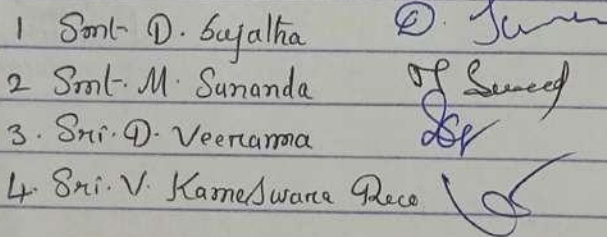 1 Smt. D. Sujatha
2 Smt. M. Sunanda
3. Sri. D. Veeranna
4. Sri. V. Kameswara Rao